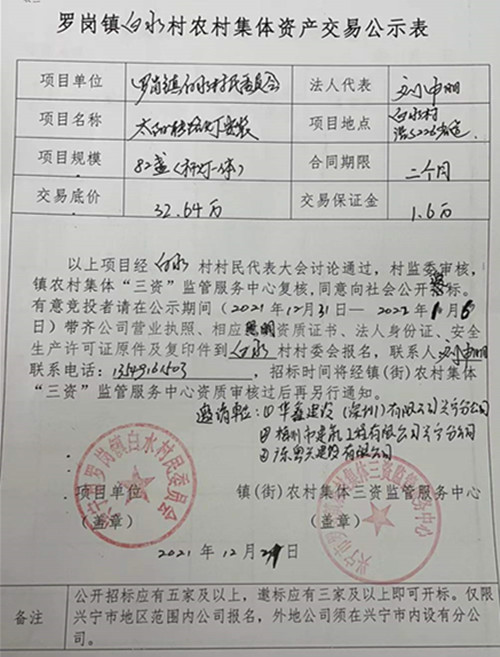 罗岗镇白水村农村集体资产交易公示表
项目单位 罗岗镇白水村民委员会 法人代表 刘中明
项目名称 太阳能路灯安装 项目地点 白水村 沿S226省道
项目规模 82盏（杆灯一体） 合同期限 二个月
交易底价 32.64万 交易保证金 1.6万
以上项目经白水村村民代表大会讨论通过，村监委审核，
镇农村集体“三资”监管服务中心复核，同意向社会公开 标。
有意竞投者请在公示期间（2021年12月31日— 2022年1月6
日）带齐公司营业执照、相应照明资质证书、法人身份证、安全
生产许可证原件及复印件到白水村村委会报名，联系人刘中明
联系电话： ，招标时间将经镇(街)农村集体
“三资”监管服务中心资质审核过后再另行通知。
邀请单位：① 华鑫建设（深圳）有限公司兴宁分公司
② 梅州市建航工程有限公司兴宁分公司
③ 广东粤兴建设有限公司
项目单位 镇(街)农村集体三资监管服务中心
（盖章） （盖章）
兴宁市罗岗镇白水村民委员会
2021年12月 日
备注
公开招标应有五家及以上，邀标应有三家及以上即可开标。仅限
兴宁市地区范围内公司报名，外地公司须在兴宁市内设有分公
司。